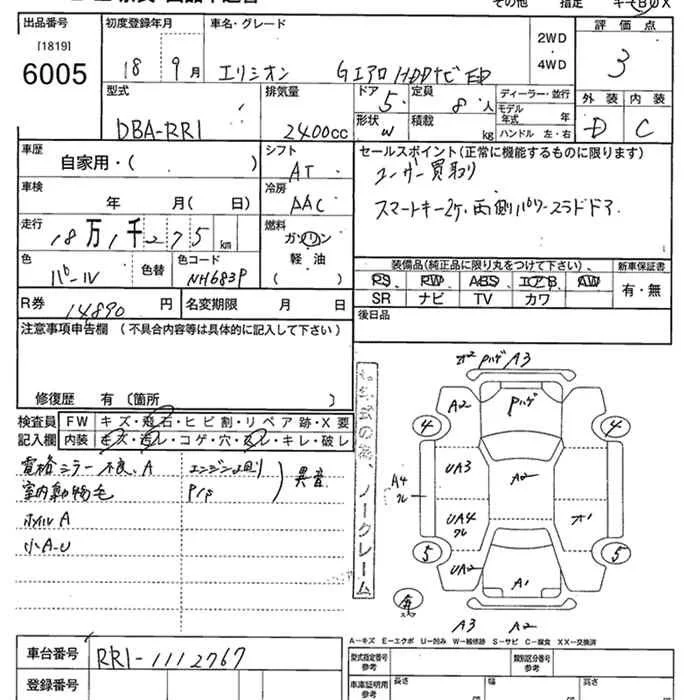 その他 指定 キーBOX
出品番号 初度登録年月 車名・グレード 2WD・4WD 評価点
[1819]
6005 18 9月 エリシオン GエアロHDDナビED 3
型式 排気量 ドア 5 定員 8人 ディーラー・並行 外装 内装
DBA-RR1 2400cc 形状 W 積載 kg モデル年式 年 D C
ハンドル 左・右
車歴 シフト セールスポイント(正常に機能するものに限ります)
自家用・( ) AT ユーザー買取り
車検 冷房
年 月( 日) AAC スマートキー2ケ、両側パワースライドドア
走行 燃料
18万1千275km ガソリン
色 色替 色コード 軽油 装備品(純正品に限り丸をつけて下さい)、 新車保証書
パール NH683P ( ) PS PW ABS エアB AW 有・無
SR ナビ TV カワ
R券 14890円 名変期限 月 日 後日品
注意事項申告欄 (不具合内容等は具体的に記入して下さい)
修復歴 有(箇所 )
検査員 FW キズ・飛石・ヒビ割・リペア跡・X要
記入欄 内装 キズ・汚レ・コゲ・穴・スレ・キレ・破レ
電格ミラー不良、A エンジン廻り
室内動物毛 P/S 異音
ホイルA
小A-U
ノークレーム
Pハゲ A3
A2 Pハゲ
4 4
UA3 A2
A4
UA4
5 5
UA2 A1
A3 A2
A-キズ E-エクボ U-凹み W-補修跡 S-サビ C-腐食 XX-交換済
車台番号 RR1-1112767 型式指定番号 類別区分番号
参考 参考
登録番号 車庫証明用 長さ 幅 高さ
参考